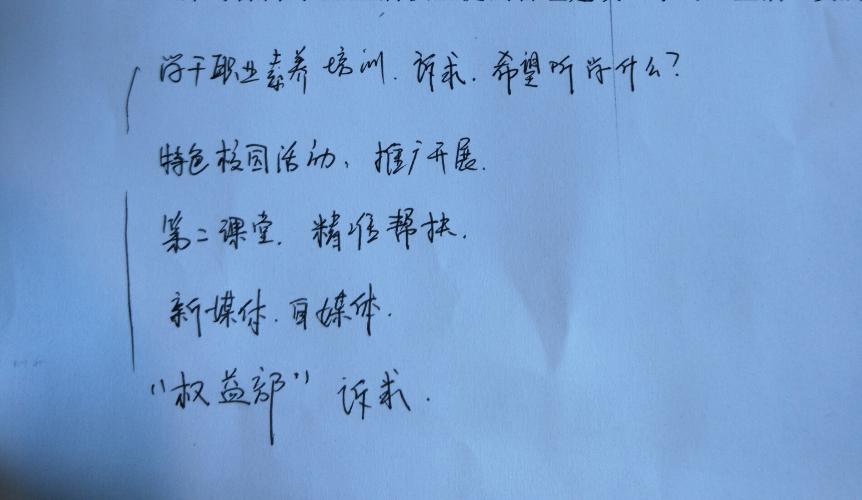 学干职业素养培训.诉求.希望所学什么?
特色校园活动,推广开展.
第二课堂.精准帮扶.
新媒体.自媒体.
"权益部"诉求.